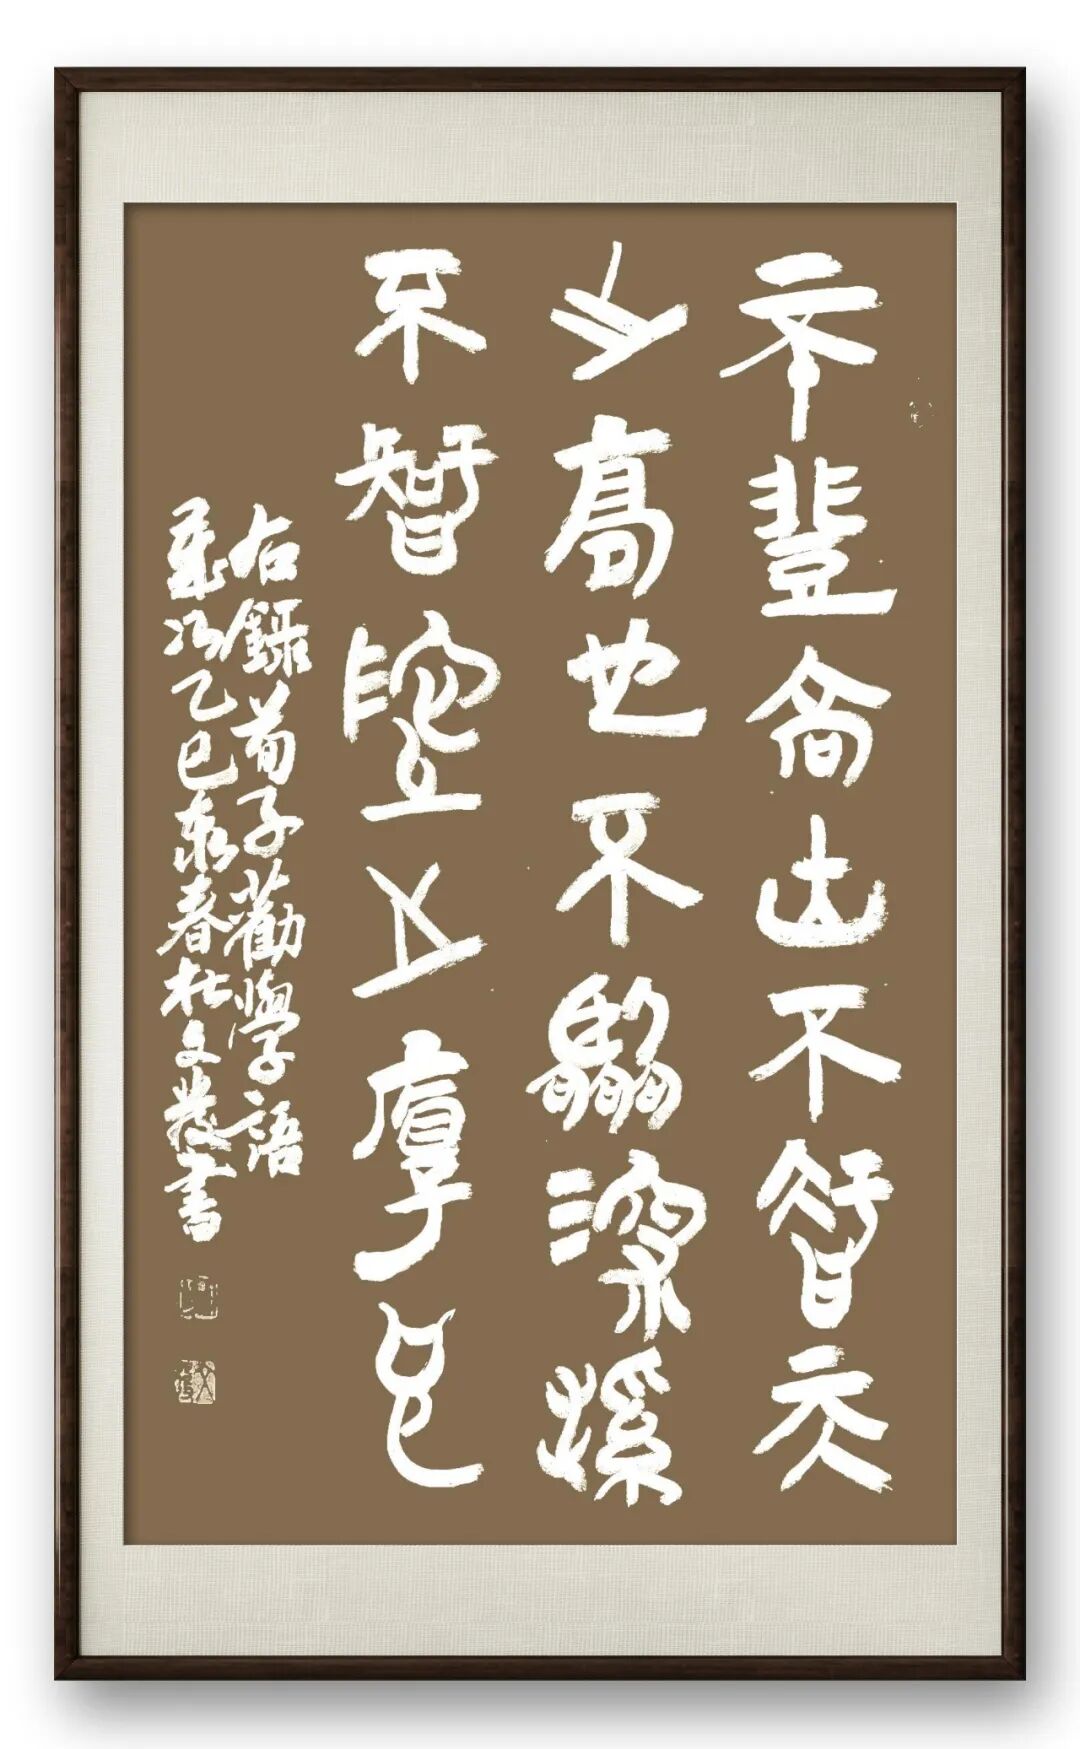 不登高山不智天
之高也不臨深溪
不智地之厚也
右錄荀子勸學語
歲次乙巳泰春杜文義書